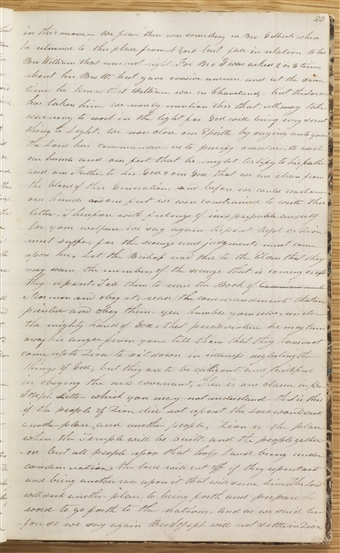 20
in this move— we fear there was something in Bro Gilbert when
he returned to this place from N York last fall in relation to his
Bro William that was not right For Bro G was asked 2 or 3 times
about his Bro Wm but gave evasive answers and at the same
time he knew that William was in Cleaveland, but the Lord
has taken him we merely mention this that all may take
warning to work in the light for God will bring every secret
thing to Light, We now close our Epistle by saying unto you
the Lord has commanded us to purify ourselves, to wash
our hands and our feet that he might testify to his Father
and our Father to his God & our God that we are clean from
the blood of this Generation, and before we could wash
our hands and our feet we were constrained to write this
letter, Therefore with feelings of inexpressible anxiety
for your welfare we say again Repent Repent or Zion
must suffer, for the scourge and judgments must come
upon her, Let the Bishop read this to the Elders that they
may warn the members of the scourge that is coming except
they repent. Tell them to read the Book of
Mormon and obey it, read the commandments that are
printed and obey them, yea humble yourselves under
the mighty hand of God, that peradventure he may turn
away his anger from you tell them that they have not
come up to Zion to sit down in idleness neglecting the
things of God, but they are to be diligent and faithful
in obeying the new covenant, there is one clause in Br
Joseph Letter which you may not understand that is this
if the people of Zion did not repent the Lord would seek
another place, and another people, Zion is the place
where the Temple will be built and the people gather-
ed but all people upon that holy land being under
condemnation, the Lord will cut off if they repent not
and bring another race upon it that will serve him the Lord
will seek another place to bring forth and prepare his
word to go forth to the nations, and as we said be-
fore so we say again Bro Joseph will not settle in Zion